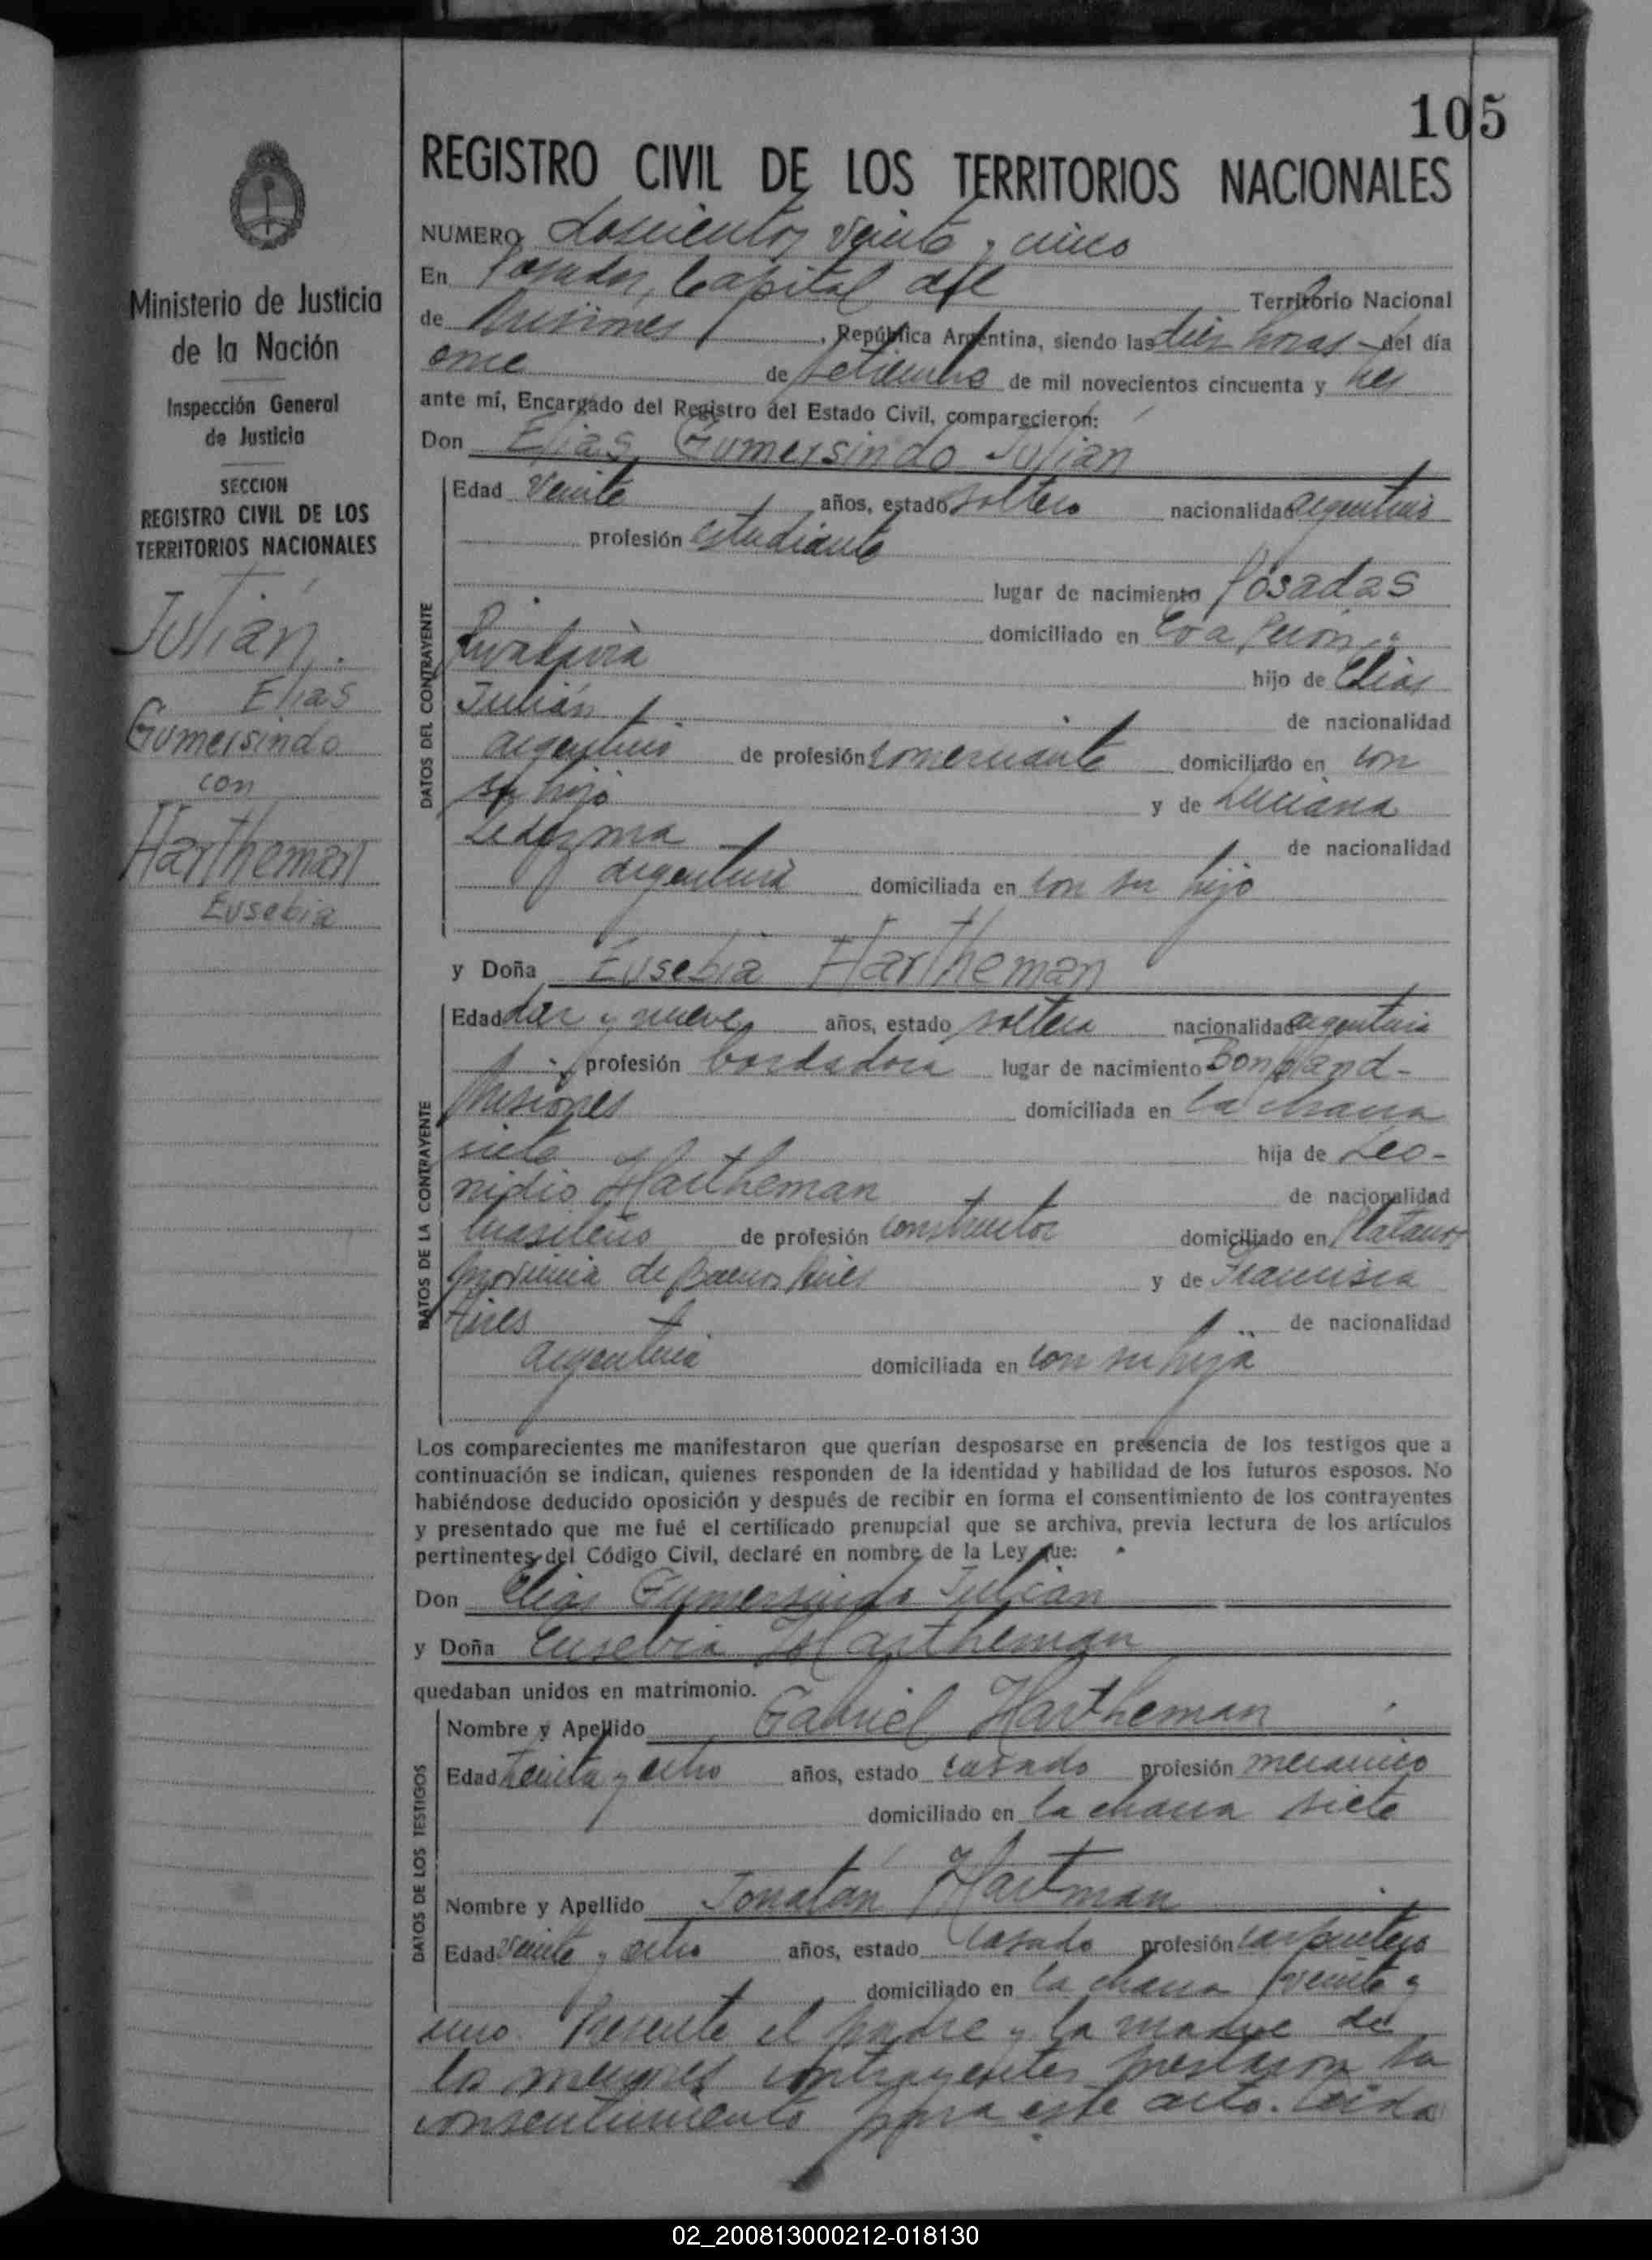 105
REGISTRO CIVIL DE LOS TERRITORIOS NACIONALES
Ministerio de Justicia
de la Nación
Inspección General
de Justicia
SECCION
REGISTRO CIVIL DE LOS
TERRITORIOS NACIONALES
Julián,
Elias
Gumersindo
con
Hartheman
Eusebia
NUMERO doscientos veinte y cinco
En Posadas, Capital del Territorio Nacional
de Misiones, República Argentina, siendo las diez horas del día
once de setiembre de mil novecientos cincuenta y tres
ante mí, Encargado del Registro del Estado Civil, comparecieron:
Don Elias Gumersindo Julian
DATOS DEL CONTRAYENTE
Edad veinte años, estado soltero nacionalidad argentino
profesión estudiante
lugar de nacimiento Posadas
domiciliado en Eva Perón
Rivadavia hijo de Elías
Julián de nacionalidad
argentino de profesión comerciante domiciliado en con
su hijo y de Luciana
Ledezma de nacionalidad
argentina domiciliada en con su hijo
y Doña Eusebia Hartheman
DATOS DE LA CONTRAYENTE
Edad diez y nueve años, estado soltera nacionalidad argentina
profesión bordadora lugar de nacimiento Bonpland-
Misiones domiciliada en la chacra
siete hija de Leo-
nidio Hartheman de nacionalidad
brasileño de profesión constructor domiciliado en Platanos
provincia de Buenos Aires y de Francisca
Aires de nacionalidad
argentina domiciliada en con su hija
Los comparecientes me manifestaron que querían desposarse en presencia de los testigos que a
continuación se indican, quienes responden de la identidad y habilidad de los futuros esposos. No
habiéndose deducido oposición y después de recibir en forma el consentimiento de los contrayentes
y presentado que me fué el certificado prenupcial que se archiva, previa lectura de los artículos
pertinentes del Código Civil, declaré en nombre de la Ley que:
Don Elias Gumersindo Julian
y Doña Eusebia Hartheman
quedaban unidos en matrimonio.
DATOS DE LOS TESTIGOS
Nombre y Apellido Gabriel Hartheman
Edad treinta y ocho años, estado casado profesión mecanico
domiciliado en la chacra siete
Nombre y Apellido Jonatán Hartman
Edad veinte y ocho años, estado casado profesión carpintero
domiciliado en la chacra veinte y
uno. Presente el padre y la madre de
los menores contrayentes prestaron su
consentimiento para este acto. Leída
02_200813000212-018130